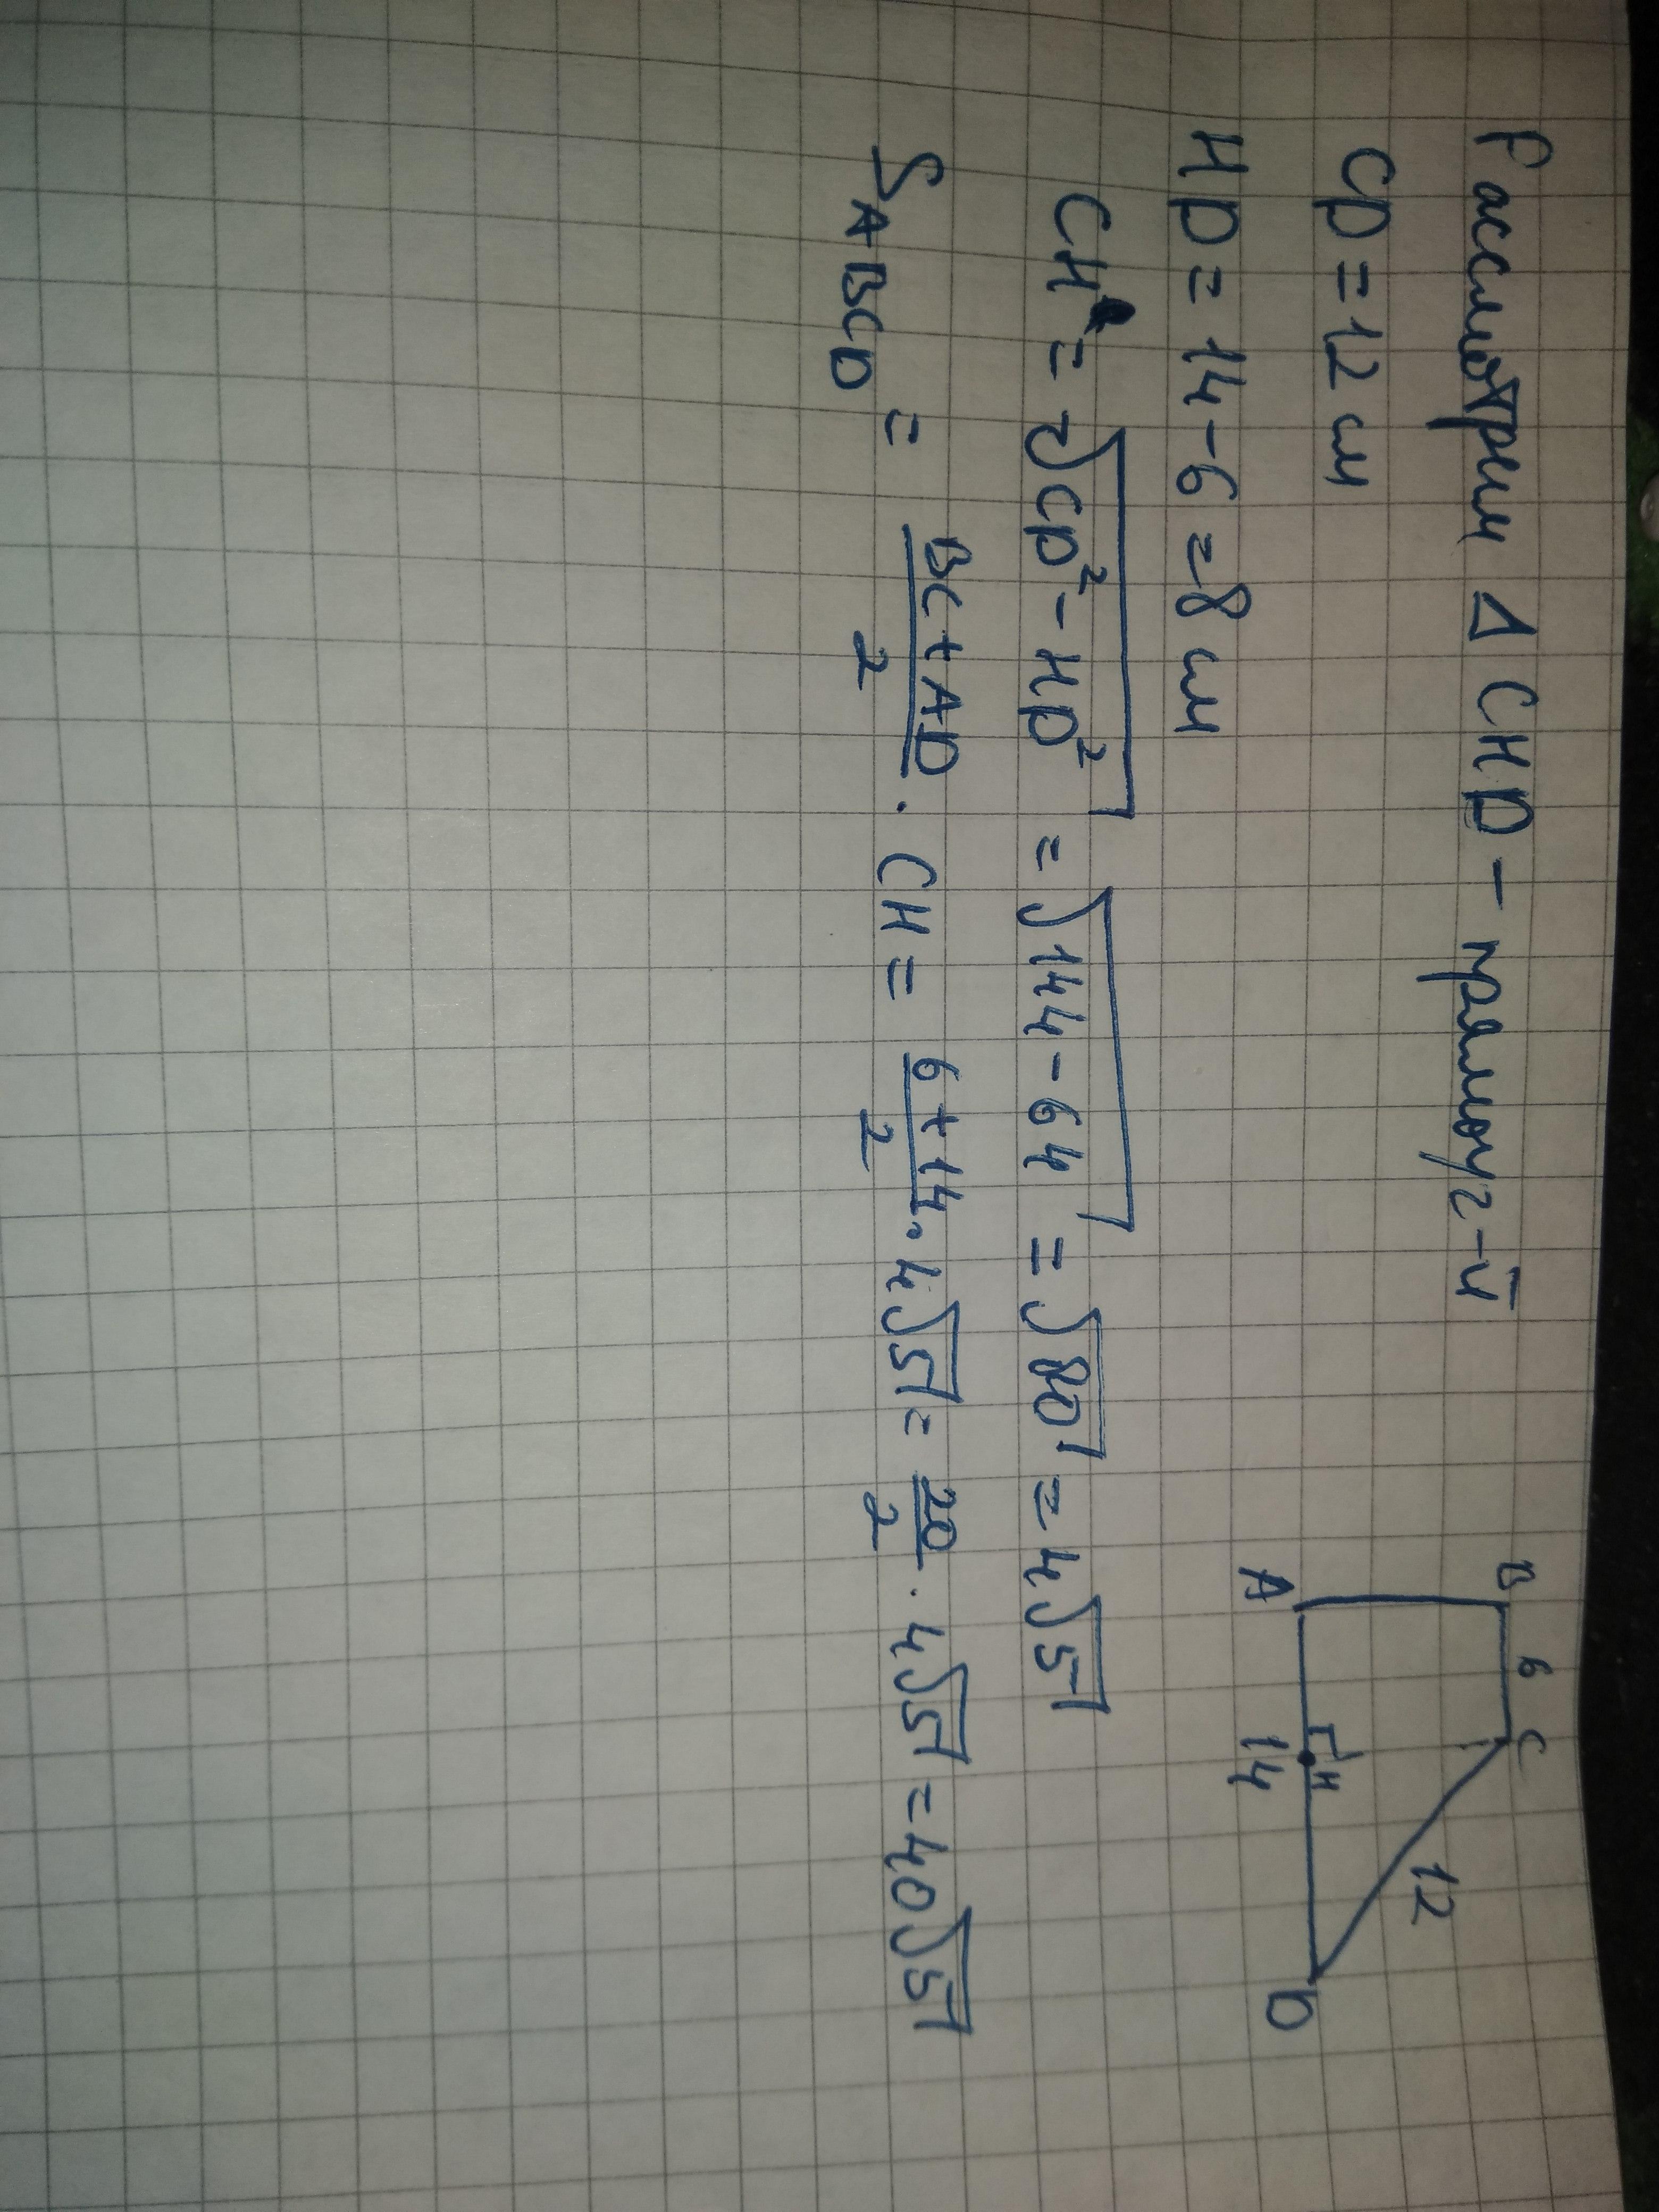 Рассмотрим Δ CHD - прямоуг-й
CD = 12 см
HD = 14 - 6 = 8 см
CH = √CD² - HD² = √144 - 64 = √80 = 4√5
S ABCD = BC + AD / 2 · CH = 6 + 14 / 2 · 4√5 = 20 / 2 · 4√5 = 40√5
B 6 C
12
A H D
14